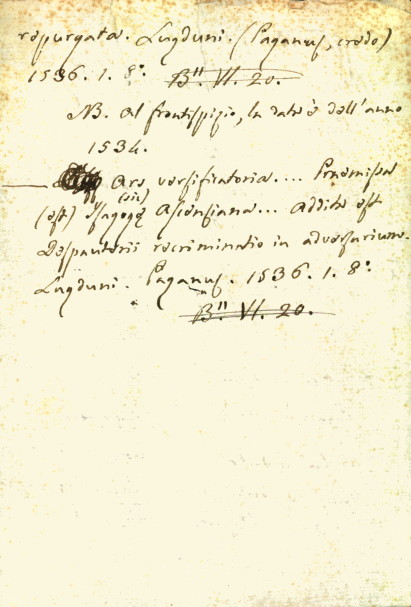 repurgata. Lugduni. (Paganus, credo)
1536. 1. 8°. B" VI. 20.
NB. Al frontispizio, la data è dell'anno
1534.
— Ars versificatoria.... Praemissa
(sic)
(est) Isagoge Ascensiana... Addita est
Despauterii recriminatio in adversarium.
Lugduni. Paganus. 1536. 1. 8°.
B" VI. 20.